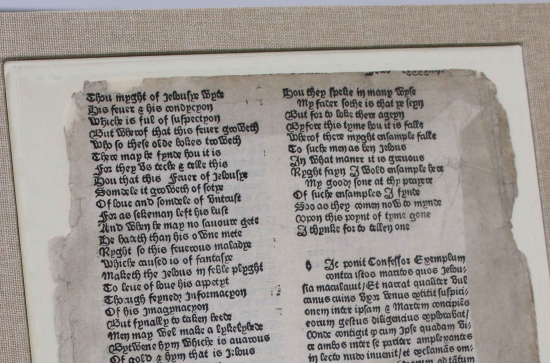 Thou myght of Jelousye wyte
His feuer & his condycyon
Whiche is ful of suspectyon
But wherof that this feuer groweth
Who so these olde bokes troweth
There may he fynde hou it is
For they vs teche & telle this
Hou that this Feuer of Jelousye
Somdele it groweth of sotye
Of loue and somdele of vntruste
For as sekeman left his lust
And when he may no sauour gete
He hateth than his owne mete
Ryght so this feuerous maladye
Whiche caused is of fantasye
Maketh the Jelous in feble plyght
To lese of loue his appetyt
Through feyned Informacyon
Of his Imagynacyon
But fynally to taken hede
Men may wel make a lykelyhede
Bytwene hym whiche is auarous
Of gold & hym that is Jelous
Hou they speke in many wyse
My fader sothe is that ye seyn
But for to loke there ageyn
Byfore this tyme hou it is falle
Wherof there myght ensample falle
To suche men as ben Jelous
In what maner it is greuous
Ryght fayn I wold ensample here
My good sone at thy prayere
Of suche ensamples I fynde
Soo as they comen now to mynde
Vpon this poynt of tyme gone
I thynke for to tellen one
h Ic ponit Confessor Exemplum
contra istos maritos quos Jelou-
sia maculauit / Et narrat qualiter Vul
canus cuius vxor Venus extitit suspici-
onem inter ipsam & Martem concipiēs
eorum gestus diligencius explorabat /
Vnde contigit quod
ambos inter se pariter amplexantes
in lecto nudo inuenit / et exclamās om-